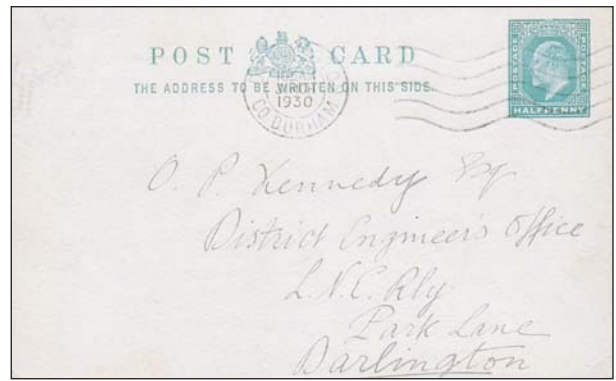 POST CARD
THE ADDRESS TO BE WRITTEN ON THIS SIDE.
POSTAGE
POSTAGE
HALFPENNY
1930
CO. DURHAM
O. P. Kennedy Esq
District Engineer's Office
L.N.E. Rly
Park Lane
Darlington